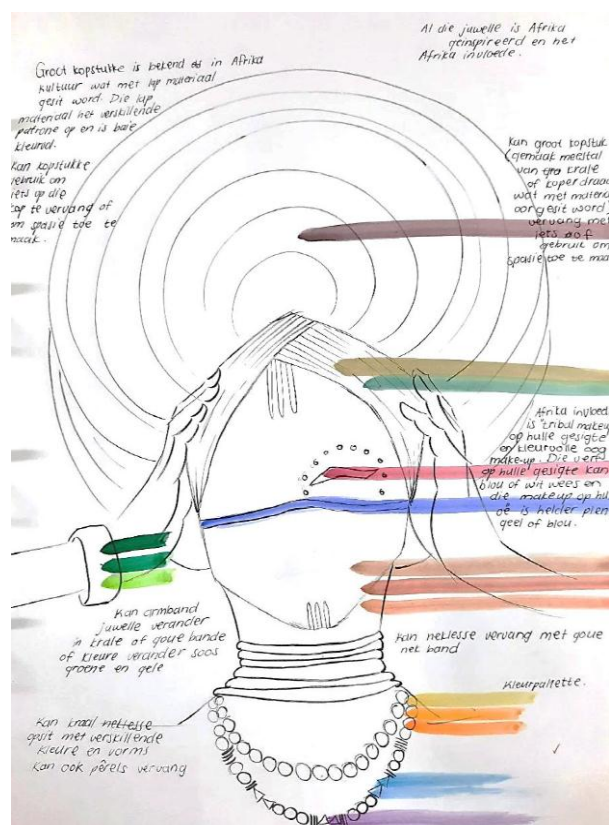 Al die juwelle is Afrika
geinspireerd en het
Afrika invloede.
Groot kopstukke is bekend as in Afrika
kultuur wat met lap materiaal
gesit word. Die lap
materiaal het verskillende
patrone op en is baie
kleured.
Kan kopstukke
gebruik om
iets op die
kop te vervang of
om spasie toe te
maak.
Kan groot kopstuk
(gemaak meestal
van krale
of koper draad
wat met materi
oorgesit word)
vervang met
iets
gebruik om
spasie toe te maa
Afrika invloed
is tribal makeu
op hulle gesigte
en kleurvolle oog
make-up. Die verf
op hulle gesigte kan
blou of wit wees en
die makeup op hul
oë is helder pien
geel of blou.
Kan armband
juwelle verander
in krale of goue bande
of kleure verander soos
groene en gele
Kan neklesse vervang met goue
nek band
Kleurpallette.
Kan kraal neklesse
opsit met verskillende
kleure en vorms
Kan ook pêrels vervang